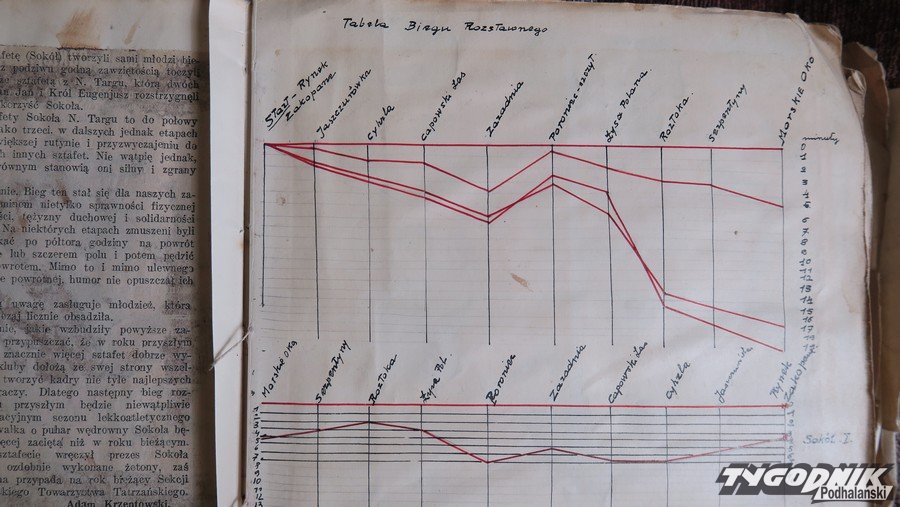 Tabela Biegu Rozstawnego
fetę (Sokół) tworzyli sami młodzi bie-
z podziwu godną zawziętością toczyli
ze sztafetą z N. Targu, którą dwóch
Jan i Król Eugenjusz rozstrzygnęli
korzyść Sokoła.
fety Sokoła N. Targu to do połowy
ako trzeci, w dalszych jednak etapach
większej rutynie i przyzwyczajeniu do
h innych sztafet. Nie wątpię jednak,
równym stanowią oni silny i zgrany
nie. Bieg ten stał się dla naszych za-
minem nietylko sprawności fizycznej
ści, tężyzny duchowej i solidarności
Na niektórych etapach zmuszeni byli
kać po półtora godziny na powrót
e lub szczerem polu i potem pędzić
owrotem. Mimo to i mimo ulewnego
e powrotnej, humor nie opuszczał ich
uwagę zasługuje młodzież, która
bzaj licznie obsadziła.
nie, jakie wzbudziły powyższe za-
przypuszczać, że w roku przyszłym
znacznie więcej sztafet dobrze wy-
kluby dołożą ze swej strony wszel-
tworzyć kadry nie tyle najlepszych
aczy. Dlatego następny bieg roz-
przyszłym będzie niewątpliwie
acyjnym sezonu lekkoatletycznego
walka o puhar wędrowny Sokoła bę-
ęcej zacięta niż w roku bieżącym.
sztafecie wręczył prezes Sokoła
ozdobnie wykonane żetony, zaś
na przypada na rok bieżący Sekcji
kiego Towarzystwa Tatrzańskiego.
Adam Krzeptowski.
Start - Rynek
Zakopane
Jaszczurówka
Cyhrla
Capowski Las
Zazadnia
Poroniec-szczyt
Łysa Polana
Roztoka
Serpentyny
Morskie Oko
minuty
0
1
2
3
4
5
6
7
8
9
10
11
12
13
14
15
16
17
Morskie Oko
Serpentyny
Roztoka
Łysa Pol.
Poroniec
Zazadnia
Capowski Las
Cyhrla
Rynek
Zakopane
1
2
3
4
5
6
7
8
9
10
11
12
13
Sokół I.
TYGODNIK
Podhalański